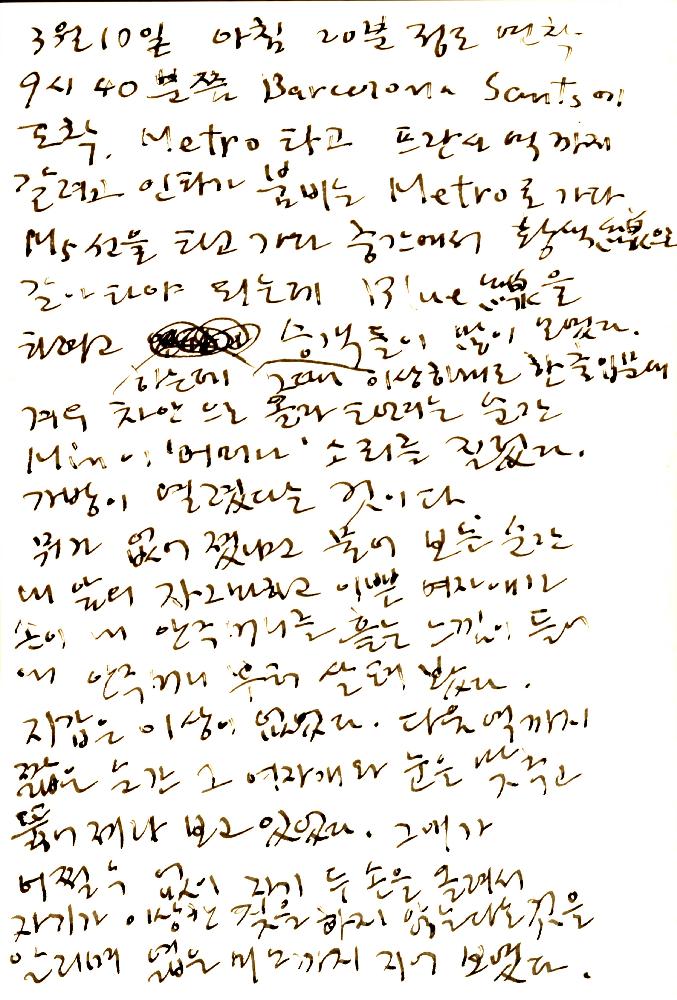 3월10일 아침 20분 정도 연착
9시 40분쯤 Barcelona Sants에
도착. Metro 타고 프란사 역까지
갈려고 인파가 붐비는 Metro로 가다
M5선을 타고 가다 중간에서 황색線으로
갈아타야 되는데 Blue線을
타려고 승객들이 많이 모였다.
하는데 그때 이상하게도 한 출입문에
겨우 차안으로 올라 타려는 순간
Min이 '어머나' 소리를 질렀다.
가방이 열렸다는 것이다
뭐가 없어 졌냐고 물어 보는 순간
내 앞의 자그마하고 이쁜 여자애의
손이 내 안쪽주머니를 훑는 느낌이 들어
내 안주머니 부터 살펴 봤다.
지갑은 이상이 없었다. 다음역까지
짧은 순간 그 여자애와 눈을 맞추고
뚫어져라 보고 있었다. 그애가
어쩔수 없이 자기 두 손을 올려서
자기가 이상한 짓을 하지 않는다는것을
알리며 엷은 미소까지 지어 보였다.